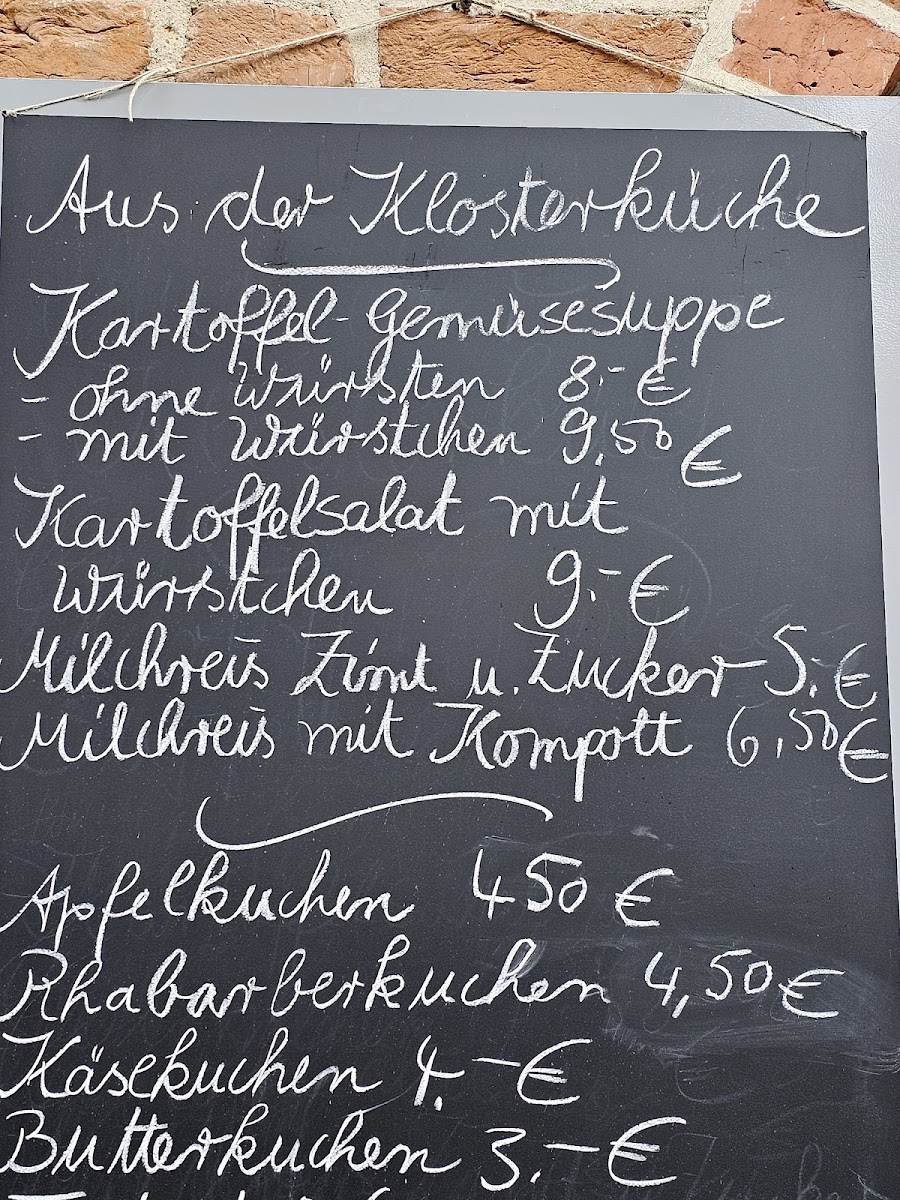 Aus der Klosterküche
Kartoffel-Gemüsesuppe
- ohne Würsten 8,- €
- mit Würstchen 9,50 €
Kartoffelsalat mit
Würstchen 9.- €
Milchreis Zimt u. Zucker 5.- €
Milchreis mit Kompott 6,50 €
Apfelkuchen 450 €
Rhabarberkuchen 4,50 €
Käsekuchen 4.- €
Butterkuchen 3.- €